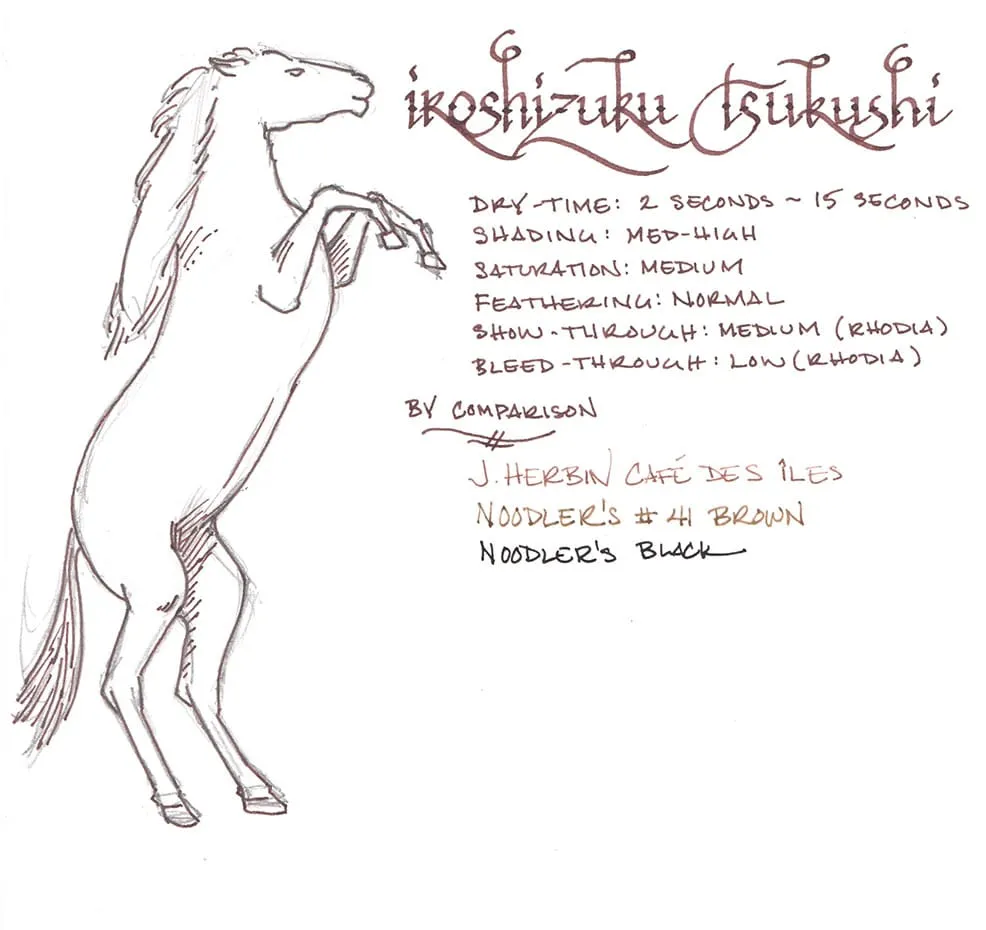 iroshizuku tsukushi
DRY-TIME: 2 SECONDS ~ 15 SECONDS
SHADING: MED-HIGH
SATURATION: MEDIUM
FEATHERING: NORMAL
SHOW-THROUGH: MEDIUM (RHODIA)
BLEED-THROUGH: LOW (RHODIA)
BY COMPARISON
J. HERBIN CAFÉ DES ÎLES
NOODLER'S # 41 BROWN
NOODLER'S BLACK